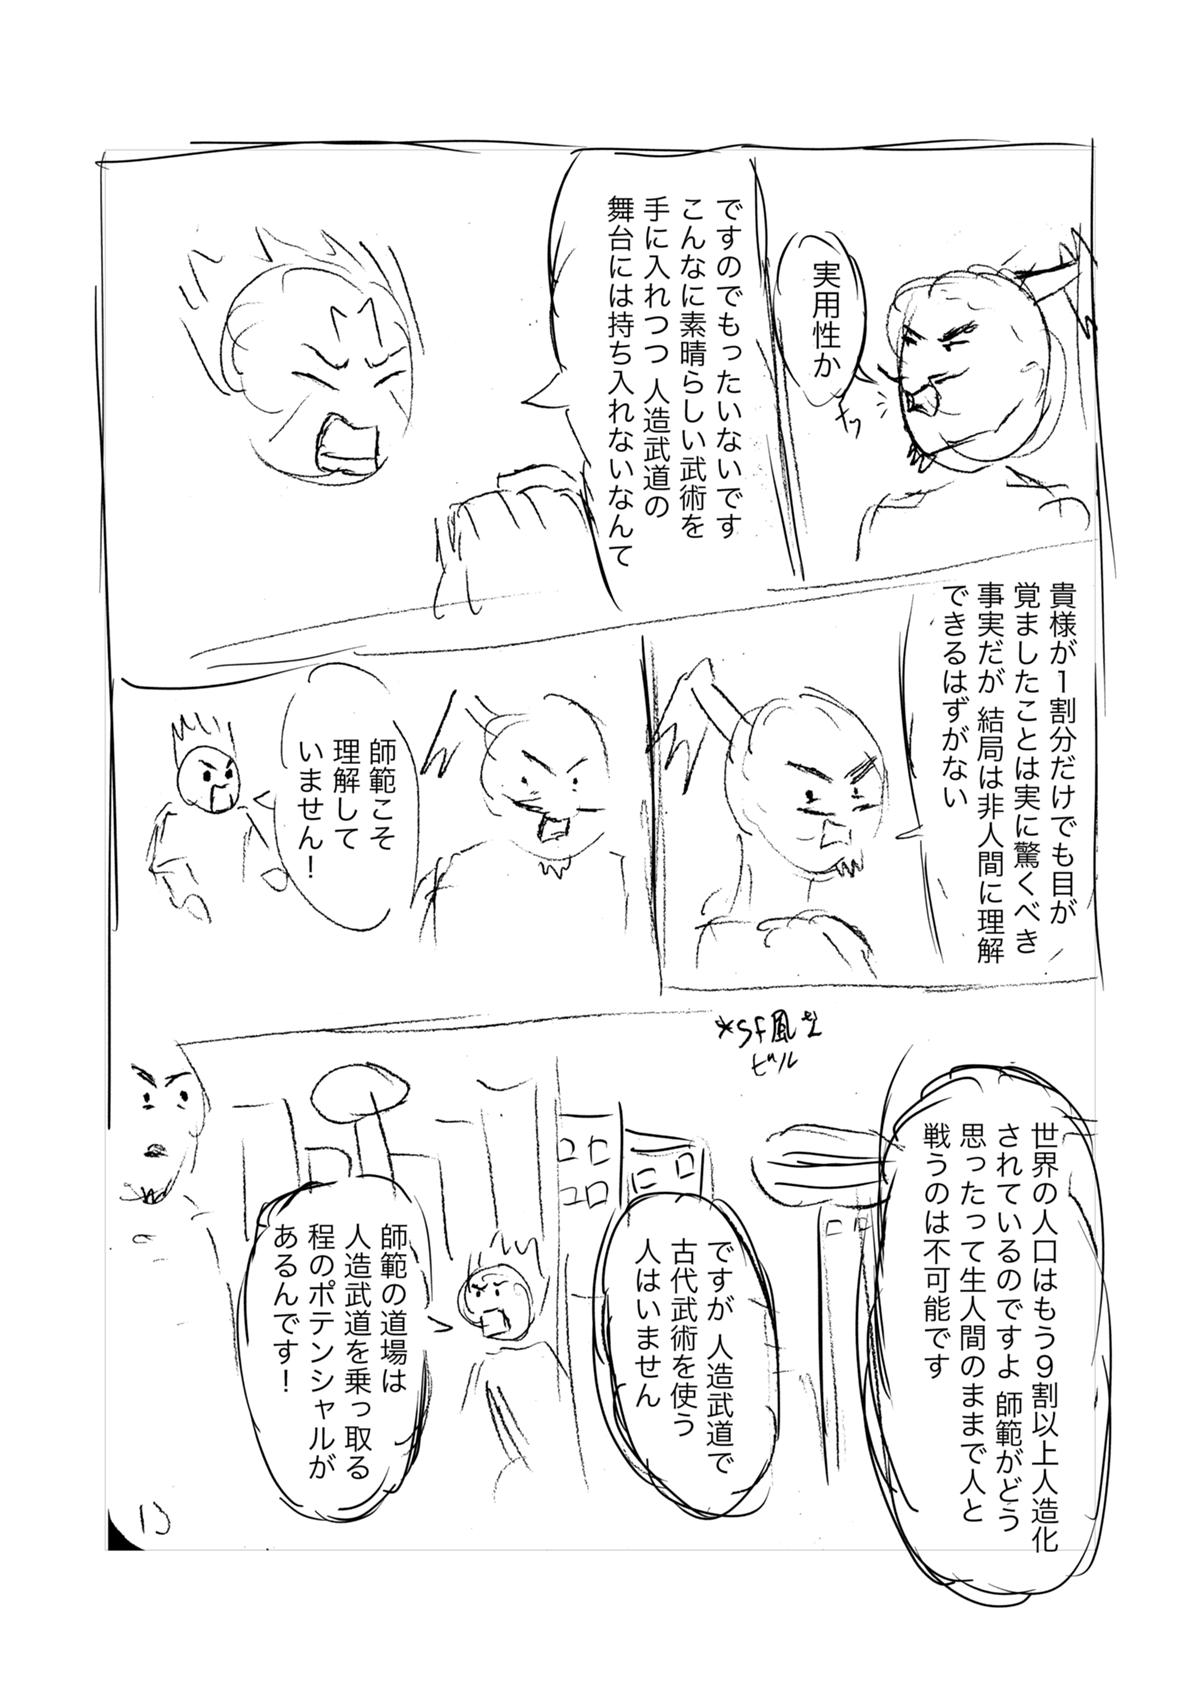 実用性か
ですのでもったいないです
こんなに素晴らしい武術を
手に入れつつ 人造武道の
舞台には持ち入れないなんて
貴様が1割分だけでも目が
覚ましたことは実に驚くべき
事実だが 結局は非人間に理解
できるはずがない
師範こそ
理解して
いません！
*sf風な
ビル
世界の人口はもう9割以上人造化
されているのですよ 師範がどう
思ったって生人間のままで人と
戦うのは不可能です
ですが 人造武道で
古代武術を使う
人はいません
師範の道場は
人造武道を乗っ取る
程のポテンシャルが
あるんです！
13